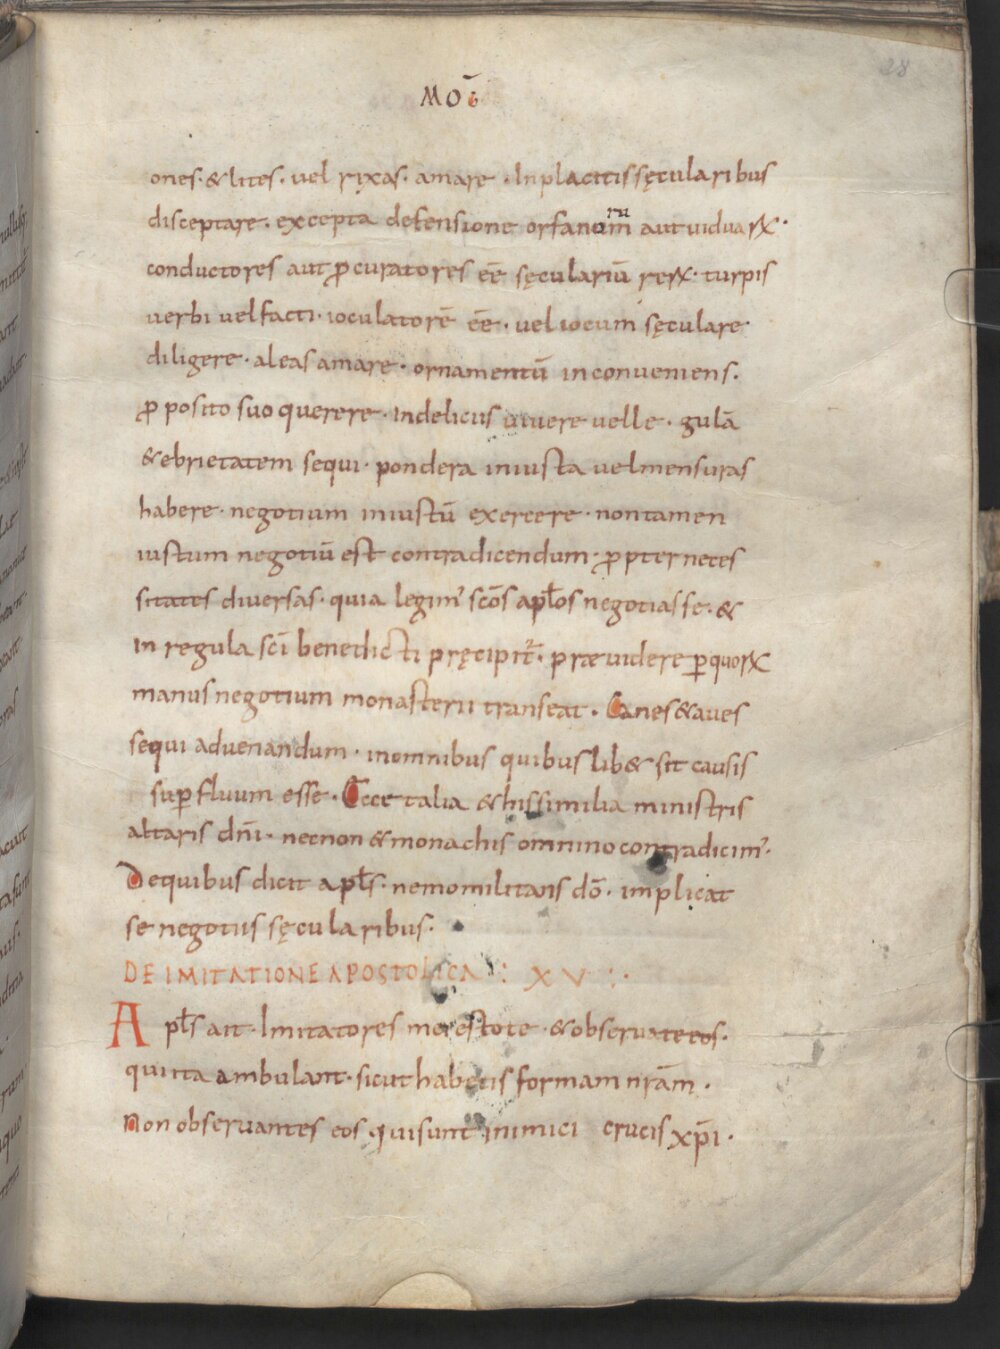 28
MOI̅
ones · & lites · vel rixas · amare · In placitis sęcularibus
disceptare · excepta defensione orfanorum aut viduaꝝ ·
conductores aut ꝓcuratores eē sęculariū reꝝ · turpis
verbi vel facti · ioculatorē eē · vel iocum sęculare ·
diligere · aleas amare · ornamentū inconveniens ·
ꝓposito suo querere · in deliciis vivere velle · gulā
& ebrietatem sequi · pondera iniusta vel mensuras
habere · negotium iniustū exercere · non tamen
iustum negotiū est contradicendum · ꝓpter neces
sitates diversas · quia legim' sc̄os apl̄os negotiasse · &
in regula sc̄i benedicti pręcipit᷑ · prævidere ꝑ quoꝝ
manus negotium monasterii transeat · Canes & aves
sequi ad venandum · in omnibus quibuslib& sit causis
suꝑfluum esse · Ecce talia & his similia ministris
altaris dn̄i · necnon & monachis omnino contradicim' ·
De quibus dicit apl̄s · nemo militans dō · implicat
se negotiis sęcularibus ·
DE IMITATIONE APOSTOLICA : XV :·
Apl̄s ait · Imitatores mei estote · & observate eos ·
qui ita ambulant · sicut habetis formam nr̄am ·
Non observantes eos qui sunt inimici crucis xp̄i ·